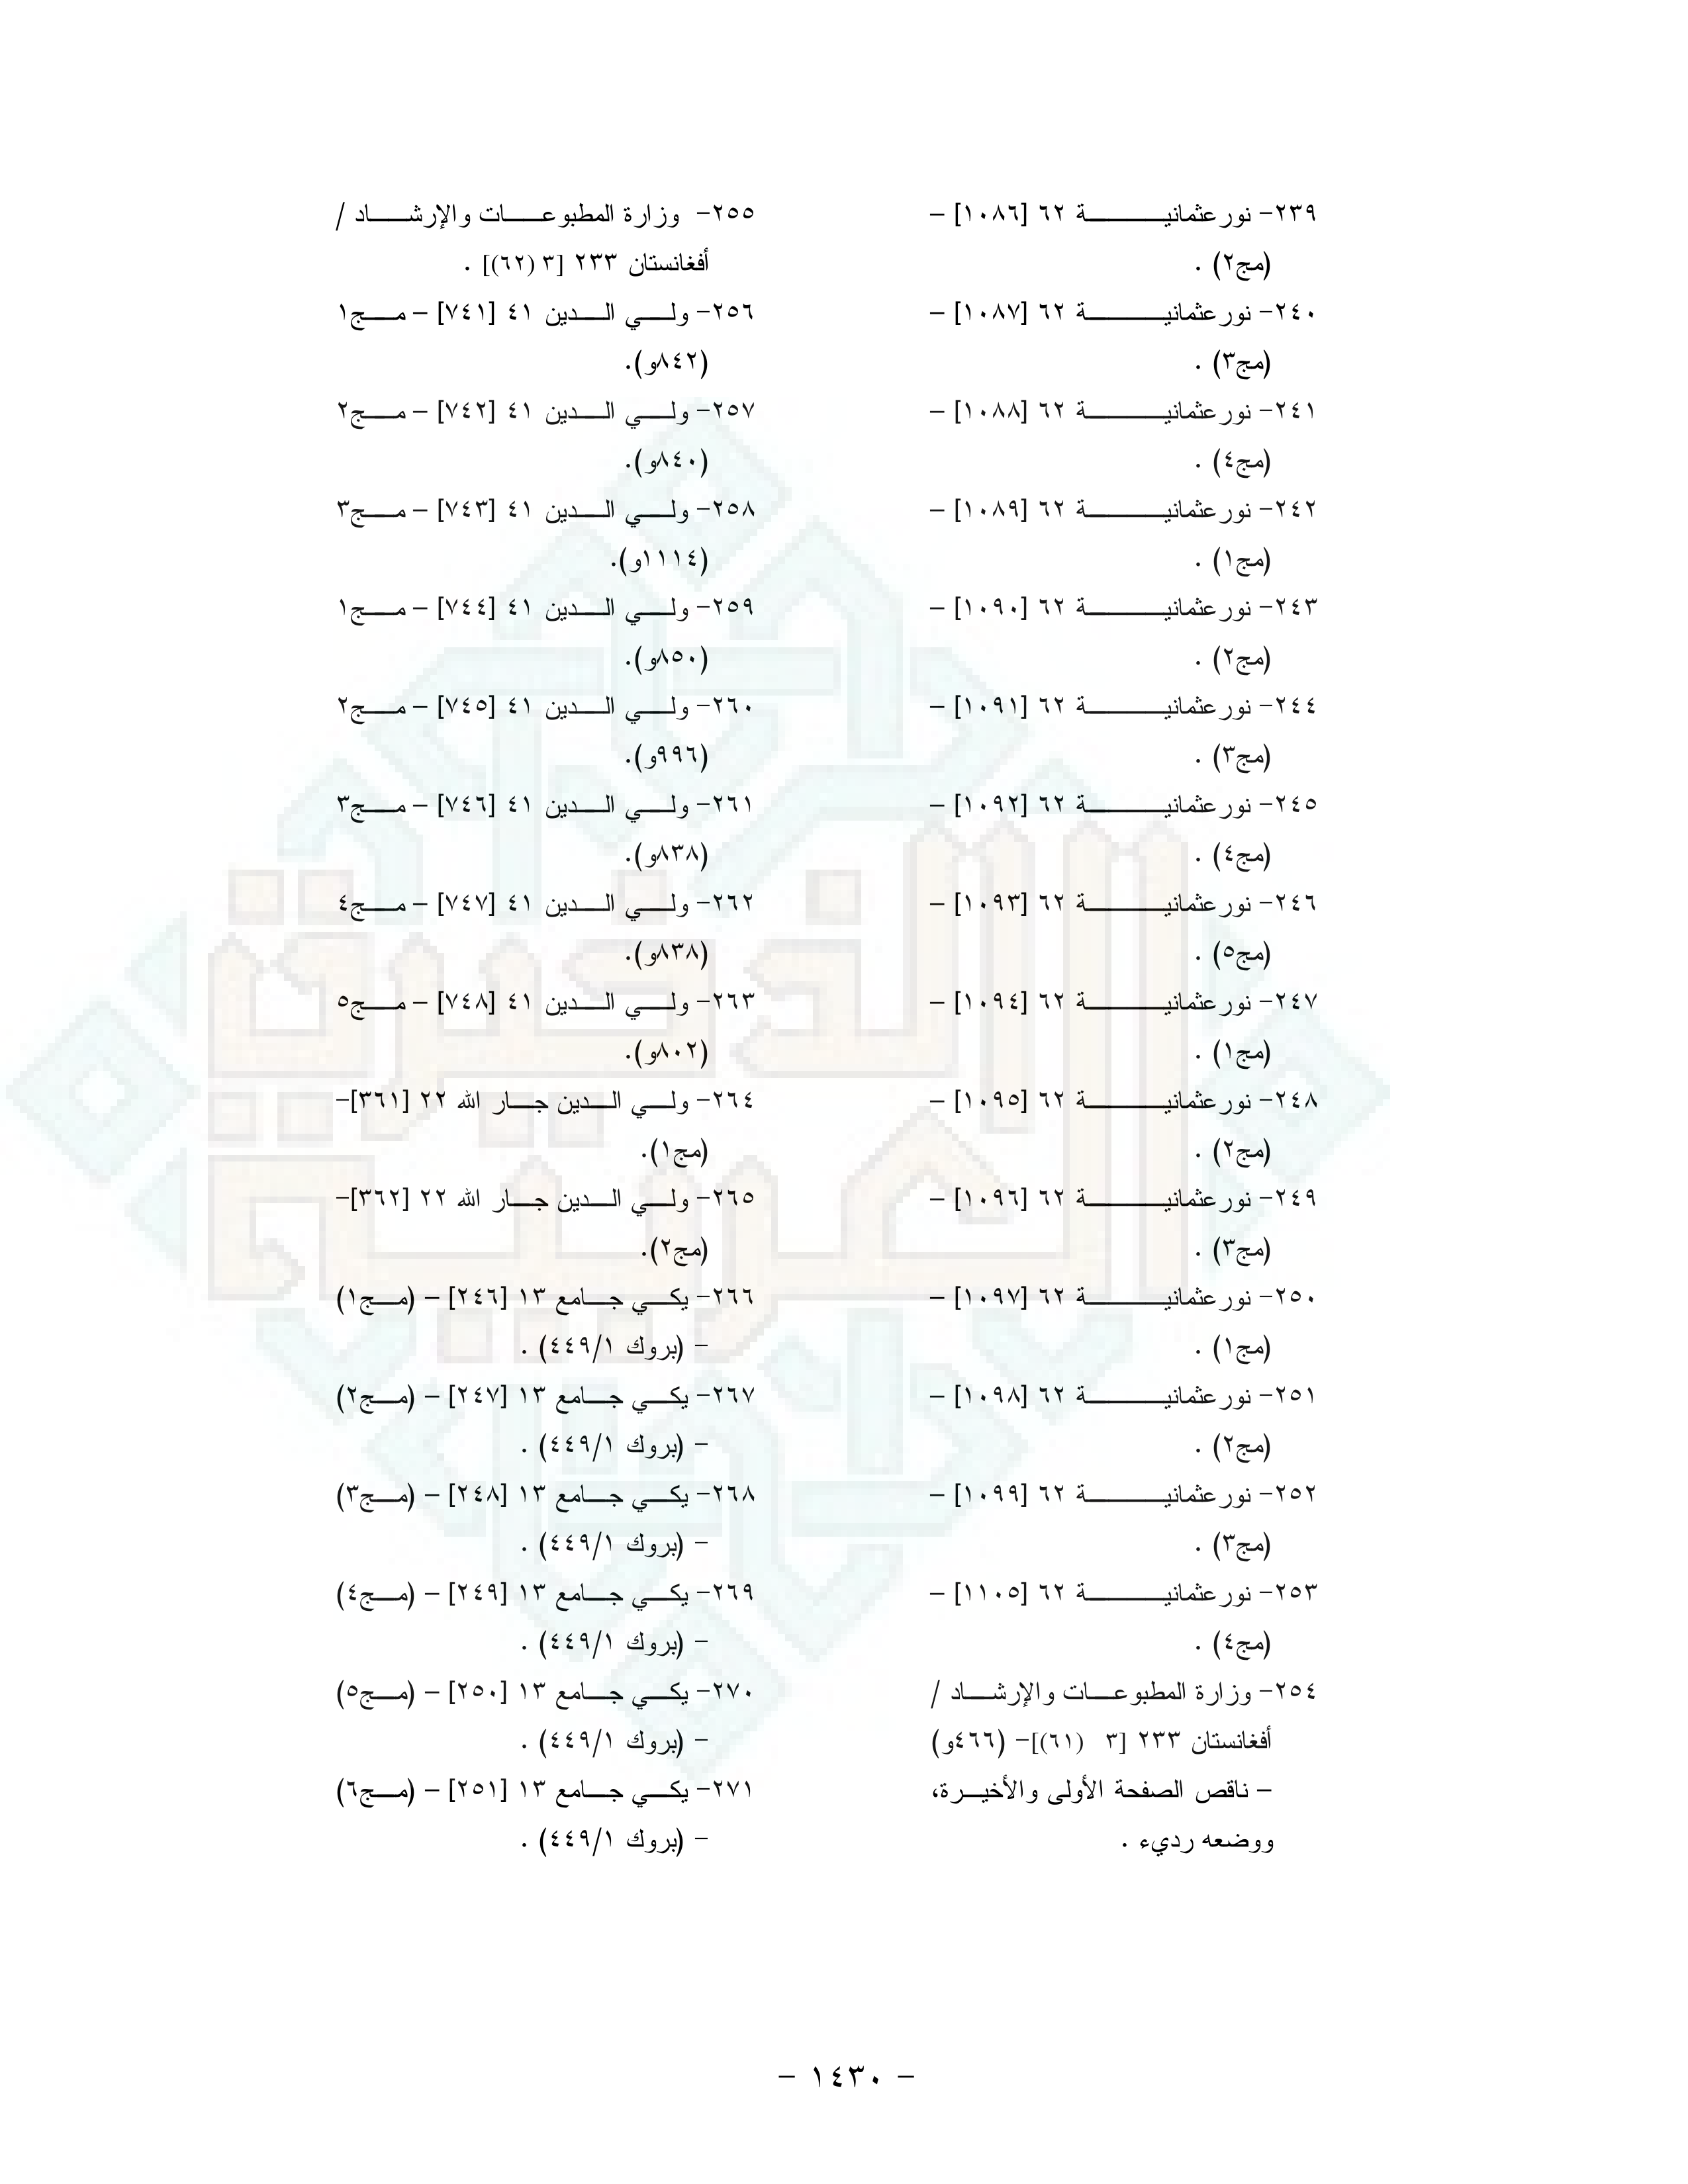 ٢٣٩- نورعثمانية ٦٢ [١٠٨٦] –
(مج٢) .
٢٤٠- نورعثمانية ٦٢ [١٠٨٧] –
(مج٣) .
٢٤١- نورعثمانية ٦٢ [١٠٨٨] –
(مج٤) .
٢٤٢- نورعثمانية ٦٢ [١٠٨٩] –
(مج١) .
٢٤٣- نورعثمانية ٦٢ [١٠٩٠] –
(مج٢) .
٢٤٤- نورعثمانية ٦٢ [١٠٩١] –
(مج٣) .
٢٤٥- نورعثمانية ٦٢ [١٠٩٢] –
(مج٤) .
٢٤٦- نورعثمانية ٦٢ [١٠٩٣] –
(مج٥) .
٢٤٧- نورعثمانية ٦٢ [١٠٩٤] –
(مج١) .
٢٤٨- نورعثمانية ٦٢ [١٠٩٥] –
(مج٢) .
٢٤٩- نورعثمانية ٦٢ [١٠٩٦] –
(مج٣) .
٢٥٠- نورعثمانية ٦٢ [١٠٩٧] –
(مج١) .
٢٥١- نورعثمانية ٦٢ [١٠٩٨] –
(مج٢) .
٢٥٢- نورعثمانية ٦٢ [١٠٩٩] –
(مج٣) .
٢٥٣- نورعثمانية ٦٢ [١١٠٥] –
(مج٤) .
٢٥٤- وزارة المطبوعات والإرشاد /
أفغانستان ٢٣٣ [٣ (٦١)]- (٤٦٦و)
– ناقص الصفحة الأولى والأخيرة،
ووضعه رديء .
٢٥٥- وزارة المطبوعات والإرشاد /
أفغانستان ٢٣٣ [٣ (٦٢)] .
٢٥٦- ولي الدين ٤١ [٧٤١] – مج١
(٨٤٢و).
٢٥٧- ولي الدين ٤١ [٧٤٢] – مج٢
(٨٤٠و).
٢٥٨- ولي الدين ٤١ [٧٤٣] – مج٣
(١١١٤و).
٢٥٩- ولي الدين ٤١ [٧٤٤] – مج١
(٨٥٠و).
٢٦٠- ولي الدين ٤١ [٧٤٥] – مج٢
(٩٩٦و).
٢٦١- ولي الدين ٤١ [٧٤٦] – مج٣
(٨٣٨و).
٢٦٢- ولي الدين ٤١ [٧٤٧] – مج٤
(٨٣٨و).
٢٦٣- ولي الدين ٤١ [٧٤٨] – مج٥
(٨٠٢و).
٢٦٤- ولي الدين جار الله ٢٢ [٣٦١]-
(مج١).
٢٦٥- ولي الدين جار الله ٢٢ [٣٦٢]-
(مج٢).
٢٦٦- يكي جامع ١٣ [٢٤٦] – (مج١)
– (بروك ٤٤٩/١) .
٢٦٧- يكي جامع ١٣ [٢٤٧] – (مج٢)
– (بروك ٤٤٩/١) .
٢٦٨- يكي جامع ١٣ [٢٤٨] – (مج٣)
– (بروك ٤٤٩/١) .
٢٦٩- يكي جامع ١٣ [٢٤٩] – (مج٤)
– (بروك ٤٤٩/١) .
٢٧٠- يكي جامع ١٣ [٢٥٠] – (مج٥)
– (بروك ٤٤٩/١) .
٢٧١- يكي جامع ١٣ [٢٥١] – (مج٦)
– (بروك ٤٤٩/١) .
الذخيرة
العربية
– ١٤٣٠ –